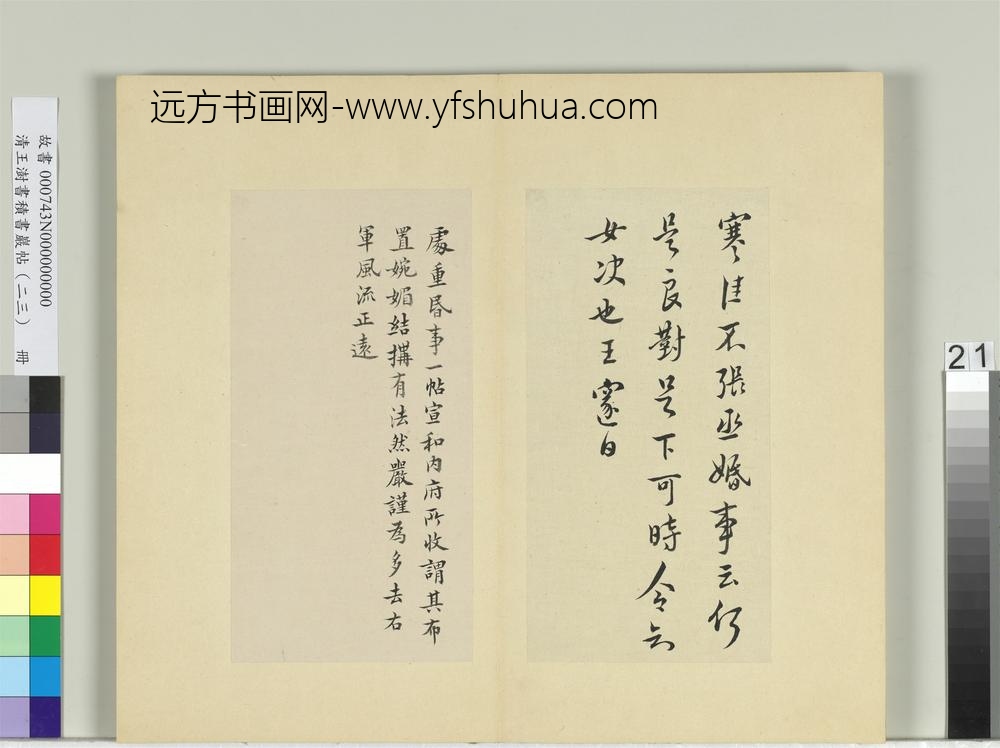 远方书画网-www.yfshuhua.com
寒佳不張丞婚事云何
是良對足下可時令知
女決也王邃白
處重昏事一帖宣和内府所收謂其布
置婉媚結搆有法然嚴謹為多去右
軍風流正遠
故書 000743N000000000
清王澍書積書巖帖(二三) 冊
21